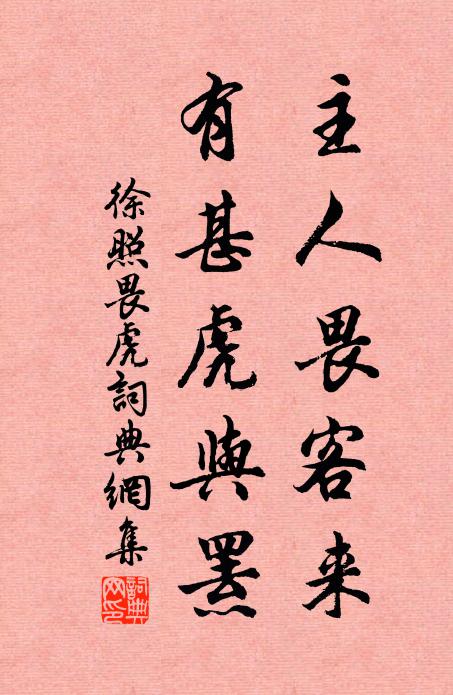 主人畏客来
有甚虎與羆
徐照畏虎詞典網集
詞典网印